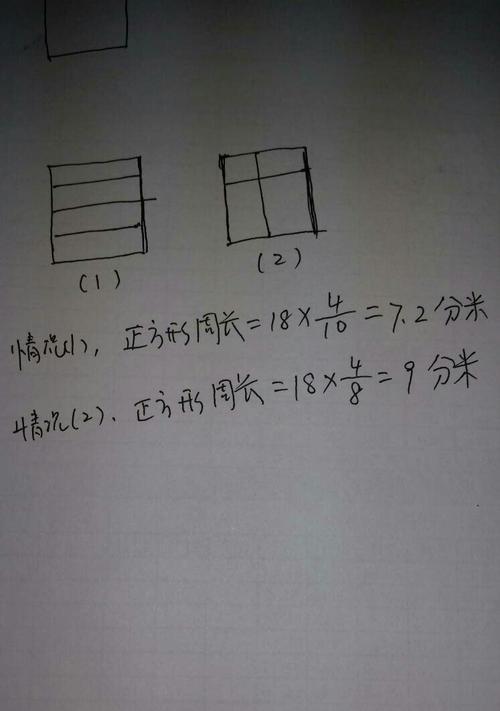 (1) (2)
情况(1), 正方形周长=18×4/10=7.2分米
情况(2). 正方形周长=18×4/8=9分米